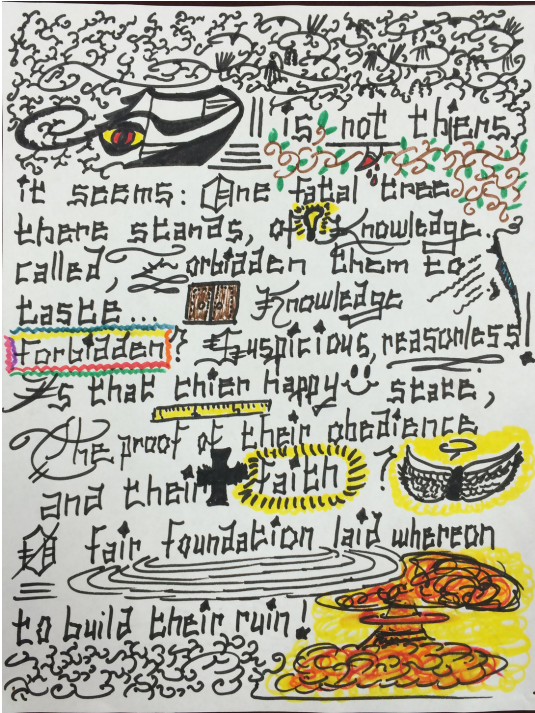 All is not thiers,
it seems: One fatal tree
there stands, of Knowledge
called, Forbidden them to
taste... Knowledge
forbidden? Suspicious, reasonless!
Is that thier happy state,
The proof of their obedience
and their faith?
O fair foundation laid whereon
to build their ruin!